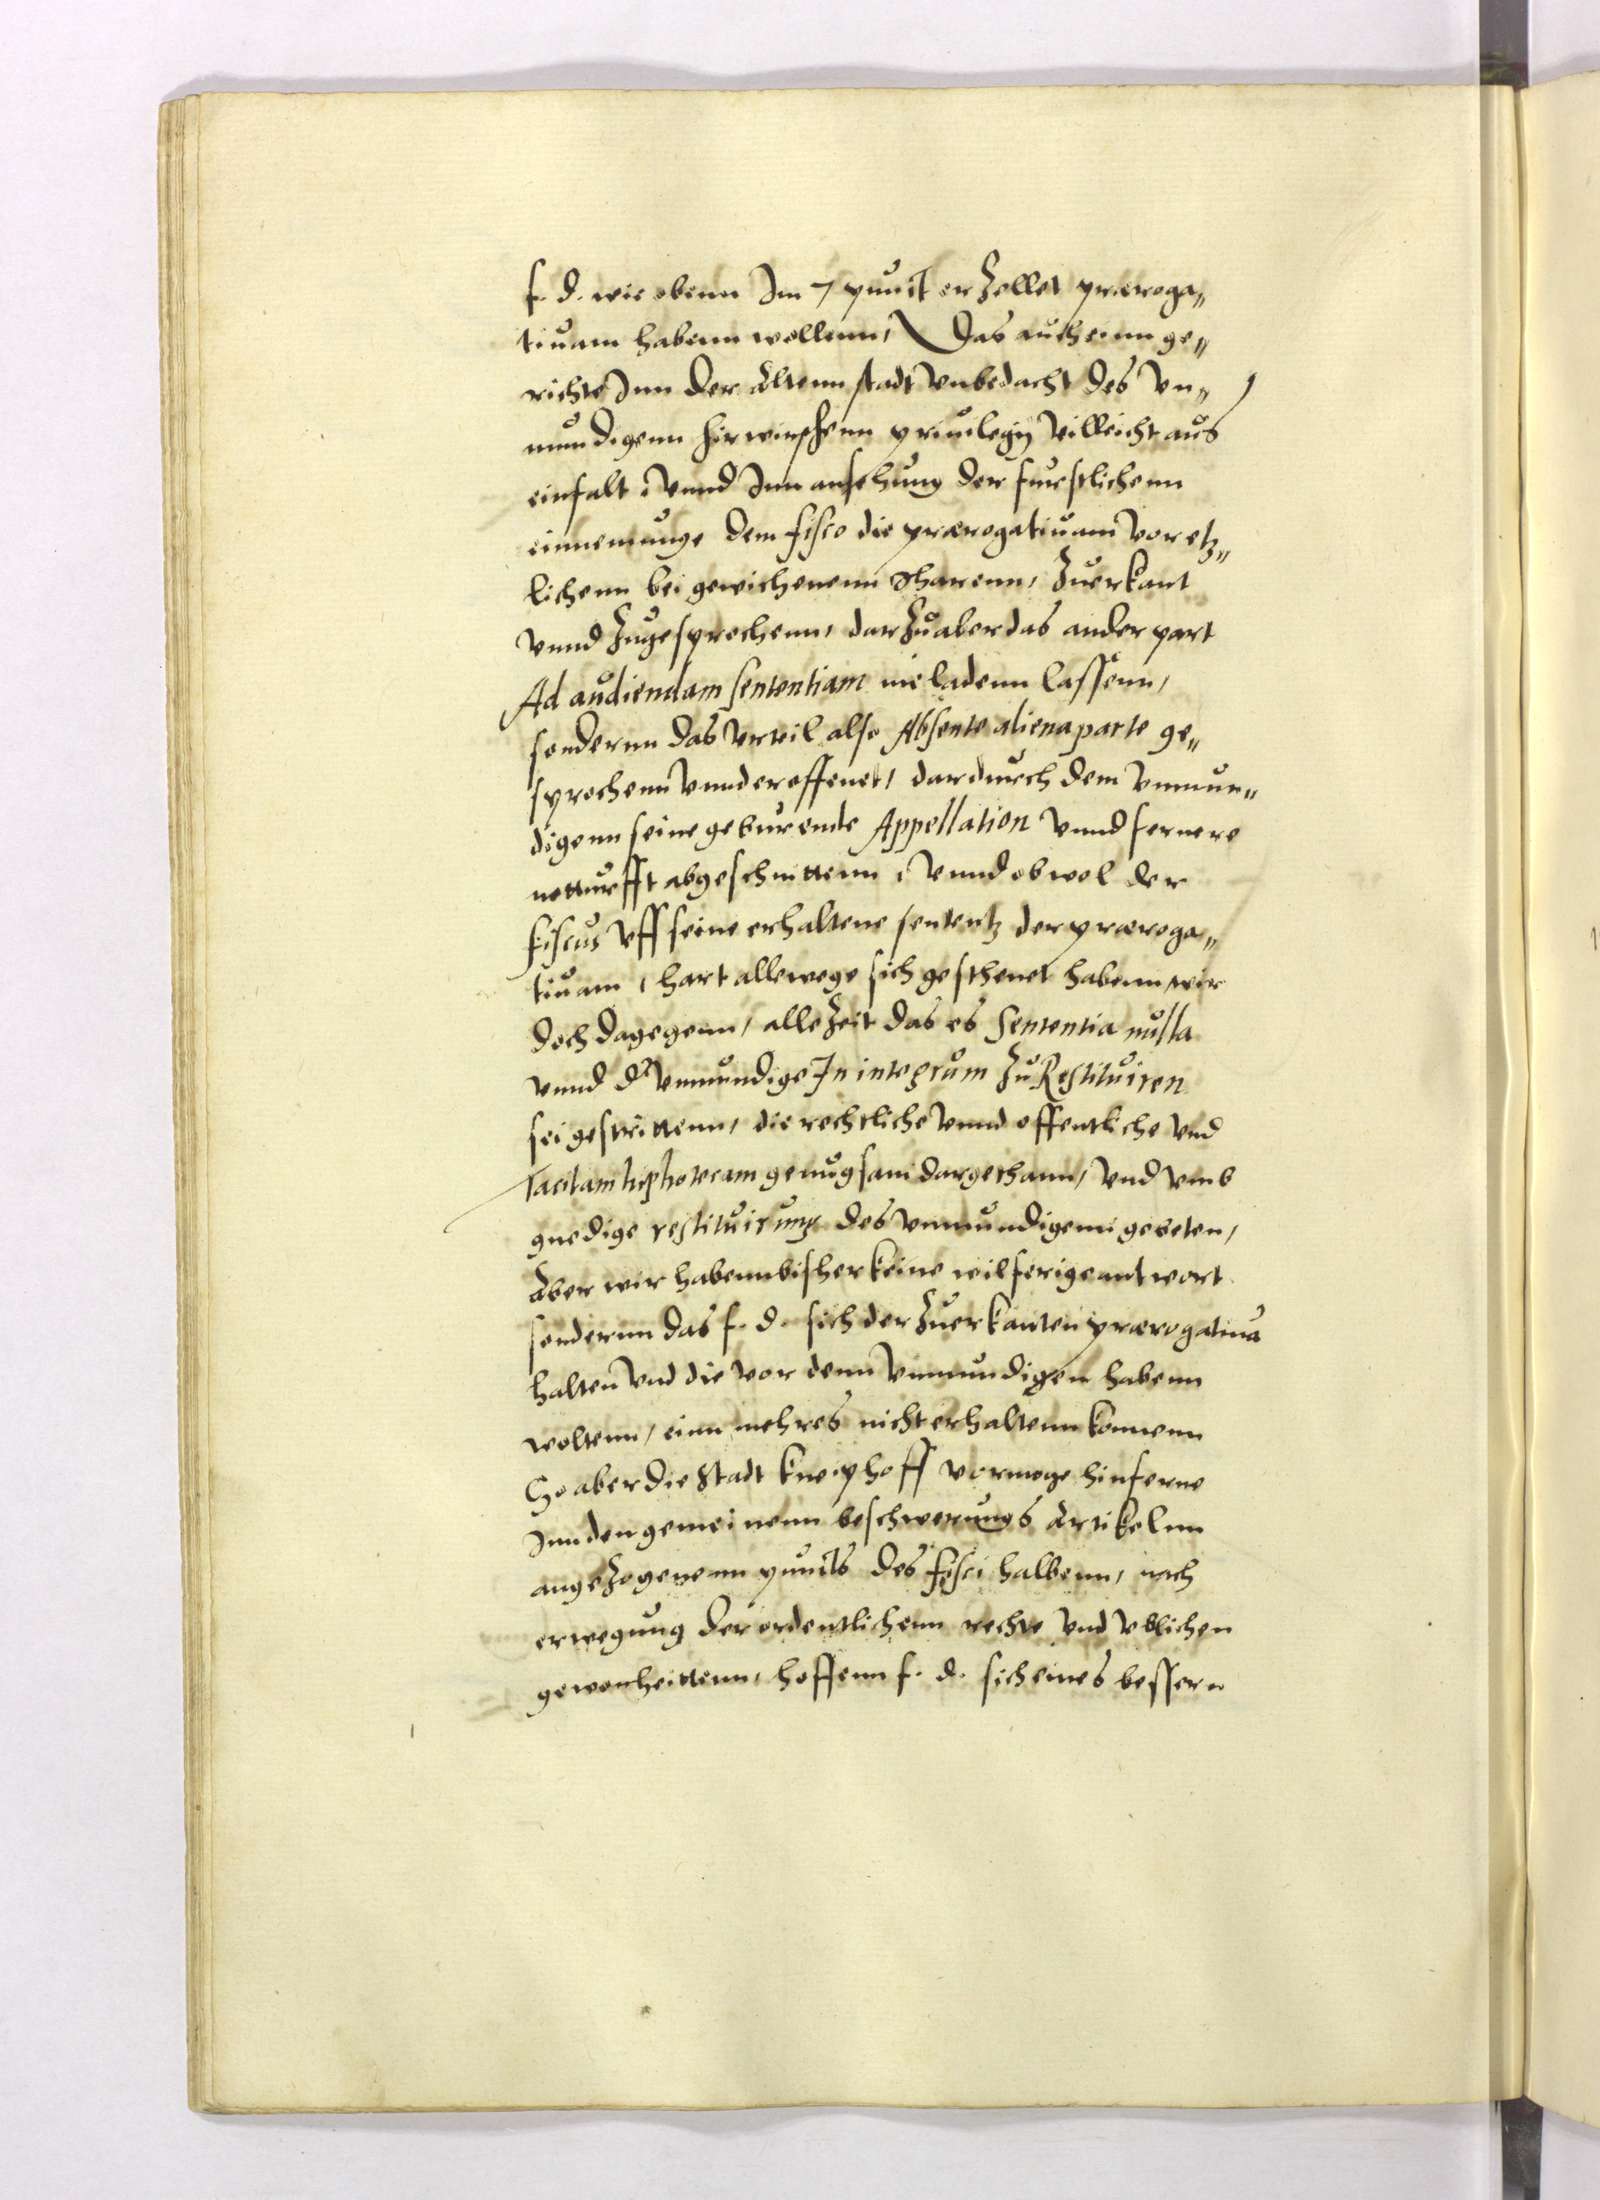 f. d. wie obenn Im 7 punct erZellet præroga„
tiuam habenn wollenn, Das auch einn ge„
richte Inn der Altenn stadt vnbedacht des vn„
mundigenn privilegij villeicht aus
einfalt, vnnd Inn ansehung der furstlichenn
einnemunge dem fisco die prærogatiuam vor etz„
lichenn bei gewichenenn Jharenn, Zuerkant
vnnd Zugesprochenn, darZu aber das ander part
Ad audiendam sententiam nie ladenn lassenn,
sondernn das vrteil also Absente aliena parte ge„
sprochenn vnnd eroffenet, dardurch dem vnmun„
digenn seine geburende Appellation vnnd fernere
notturfft abgeschnittenn, vnnd obwol der
fiscus vff seine erhaltene sententz der præroga„
tiuam, hart allewege sich gesthenet habenn wir
doch dagegenn, alle Zeit das es Sententia nulla
vnnd dr vnmundige In integrum Zu Restituiren
sei gestrittenn, die rechtliche vnnd offentliche vnd
Tacitam hiphotecam genugsam dargethann, vnd vmb
gnedige restituirung des vnmundigenn gebeten,
Aber wir habenn bisher keine wilferige antwort
sondernn das f. d. sich der Zuerkanten prærogatiua
halten vnd die vor denn vnmundigen habenn
woltenn, einn mehres nicht erhaltenn konnenn
So aber die Stadt Kneiphoff vormoge hinferne
Inn den gemeinenn beschwerungs Artikelnn
angeZogenenn puncts des fisci halbenn, nach
erwegung der ordentlichenn rechte vnd vblichen
gewonheittenn, hoffenn f. d. sich eines bessern